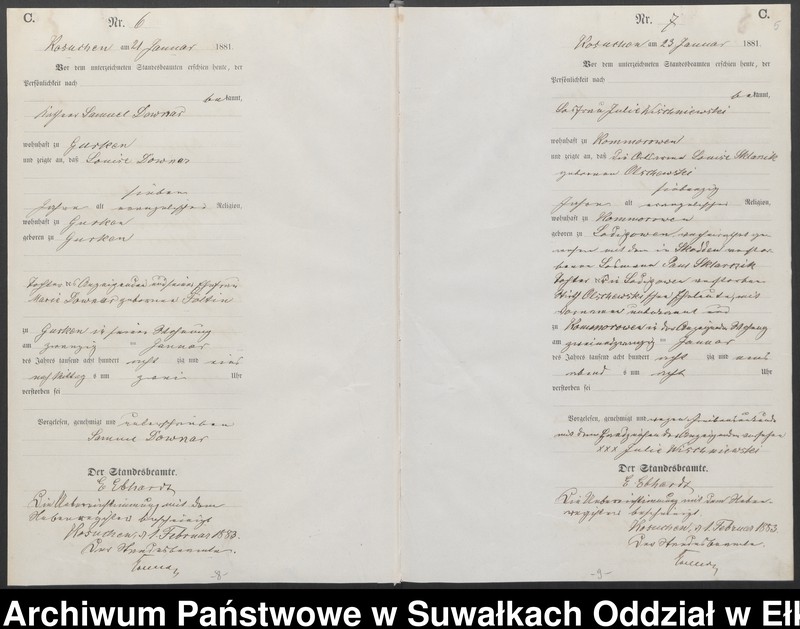 C.
Nr. 6
Rosuchen am 21 Januar 1881.
Vor dem unterzeichneten Standesbeamten erschien heute, der
Persönlichkeit nach
bekannt,
Samuel Downar
wohnhaft zu Gursken
und zeigte an, daß Louise Downar
sieben
Jahre alt evangelischer Religion,
wohnhaft zu Gursken
geboren zu Gursken
Tochter des Anzeigenden und seiner Ehefrau
Marie Downar geborenen Foltin
zu Gursken in seiner Wohnung
am zwanzig ten Januar
des Jahres tausend acht hundert acht zig und eins
nachMittag s um zwei Uhr
verstorben sei
Vorgelesen, genehmigt und unterschrieben
Samuel Downar
Der Standesbeamte.
E Ebhardt
Die Uebereinstimmung mit dem
Nebenregister bescheinigt
Rosuchen, 1. Februar 1883.
Der Standesbeamte.
-8-
C.
5
Nr. 7
Rosuchen am 23 Januar 1881.
Vor dem unterzeichneten Standesbeamten erschien heute, der
Persönlichkeit nach
bekannt,
Julie Wischniewski
wohnhaft zu Kommorowen
und zeigte an, daß die Louise Sklarzik
geborenen Olschewski
siebenzig
Jahre alt evangelischer Religion,
wohnhaft zu Kommorowen
geboren zu
mit dem in Skodden
Paul Sklarczik
Tochter der
Olschewskischen Eheleute, mit
Vornamen unbekannt
zu Kommorowen in der Anzeigenden Wohnung
am zweiundzwanzig ten Januar
des Jahres tausend acht hundert acht zig und eins
abend s um acht Uhr
verstorben sei
Vorgelesen, genehmigt und wegen
mit dem Handzeichen der Anzeigenden versehen
xxx Julie Wischniewski
Der Standesbeamte.
E Ebhardt
Die Uebereinstimmung mit dem Neben-
register bescheinigt.
Rosuchen, 1. Februar 1883.
Der Standesbeamte.
-9-
Archiwum Państwowe w Suwałkach Oddział w Ełk